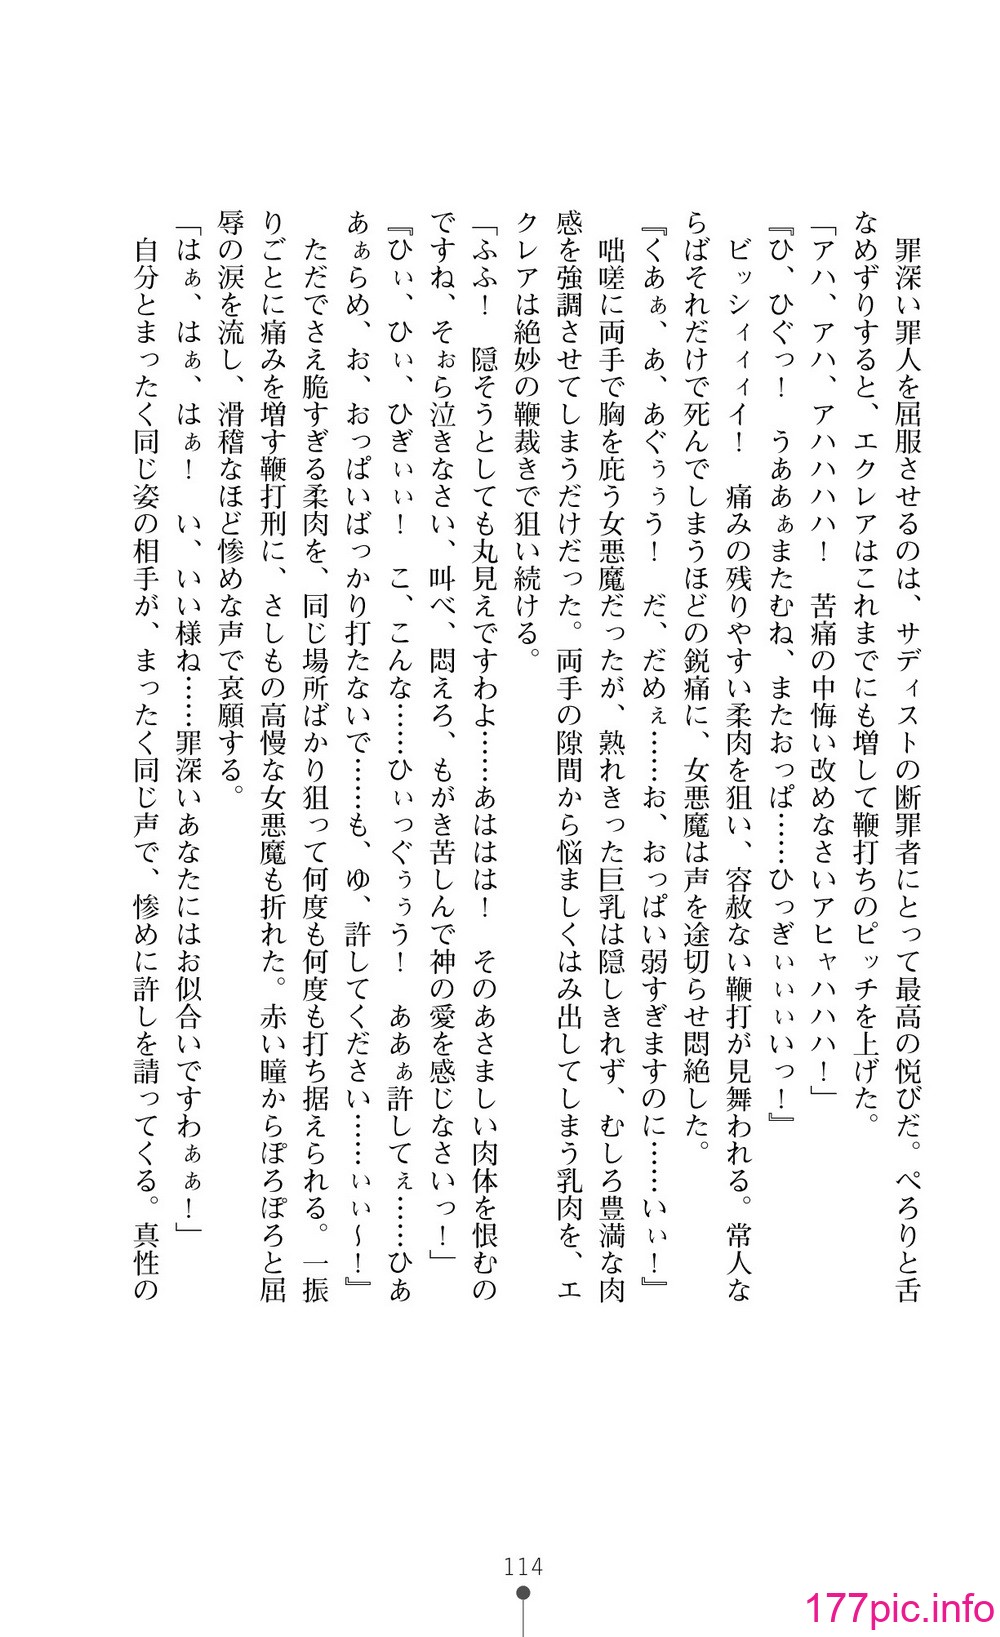 罪深い罪人を屈服させるのは、サディストの断罪者にとって最高の悦びだ。ぺろりと舌
なめずりすると、エクレアはこれまでにも増して鞭打ちのピッチを上げた。
「アハ、アハ、アハハハハ！　苦痛の中悔い改めなさいアヒャハハハ！」
『ひ、ひぐっ！　うああぁまたむね、またおっぱ……ひっぎぃぃぃいっ！』
　ビッシィィィイ！　痛みの残りやすい柔肉を狙い、容赦ない鞭打が見舞われる。常人な
らばそれだけで死んでしまうほどの鋭痛に、女悪魔は声を途切らせ悶絶した。
『くあぁ、あ、あぐぅぅう！　だ、だめぇ……お、おっぱい弱すぎますのに……いぃ！』
　咄嗟に両手で胸を庇う女悪魔だったが、熟れきった巨乳は隠しきれず、むしろ豊満な肉
感を強調させてしまうだけだった。両手の隙間から悩ましくはみ出してしまう乳肉を、エ
クレアは絶妙の鞭裁きで狙い続ける。
「ふふ！　隠そうとしても丸見えですわよ……あははは！　そのあさましい肉体を恨むの
ですね、そぉら泣きなさい、叫べ、悶えろ、もがき苦しんで神の愛を感じなさいっ！」
『ひぃ、ひぃ、ひぎぃぃ！　こ、こんな……ひぃっぐぅぅう！　ああぁ許してぇ……ひあ
あぁらめ、お、おっぱいばっかり打たないで……も、ゆ、許してください……ぃぃ～！』
　ただでさえ脆すぎる柔肉を、同じ場所ばかり狙って何度も何度も打ち据えられる。一振
りごとに痛みを増す鞭打刑に、さしもの高慢な女悪魔も折れた。赤い瞳からぽろぽろと屈
辱の涙を流し、滑稽なほど惨めな声で哀願する。
「はぁ、はぁ、はぁ！　い、いい様ね……罪深いあなたにはお似合いですわぁぁ！」
　自分とまったく同じ姿の相手が、まったく同じ声で、惨めに許しを請ってくる。真性の
114
177pic.info